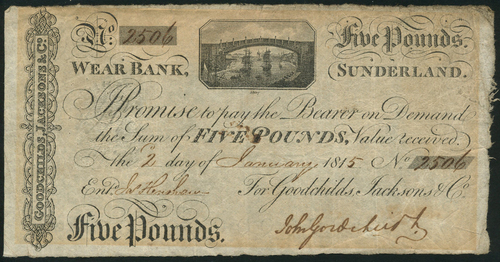 GOODCHILDS, JACKSONS & Co.
No. 2506
Five Pounds.
WEAR BANK,
SUNDERLAND.
I Promise to pay the Bearer on Demand
the Sum of FIVE POUNDS, Value received.
The 2 day of January 1815 No 2506
Entd.
For Goodchilds, Jacksons & Co.
Five Pounds.
John Goodchild